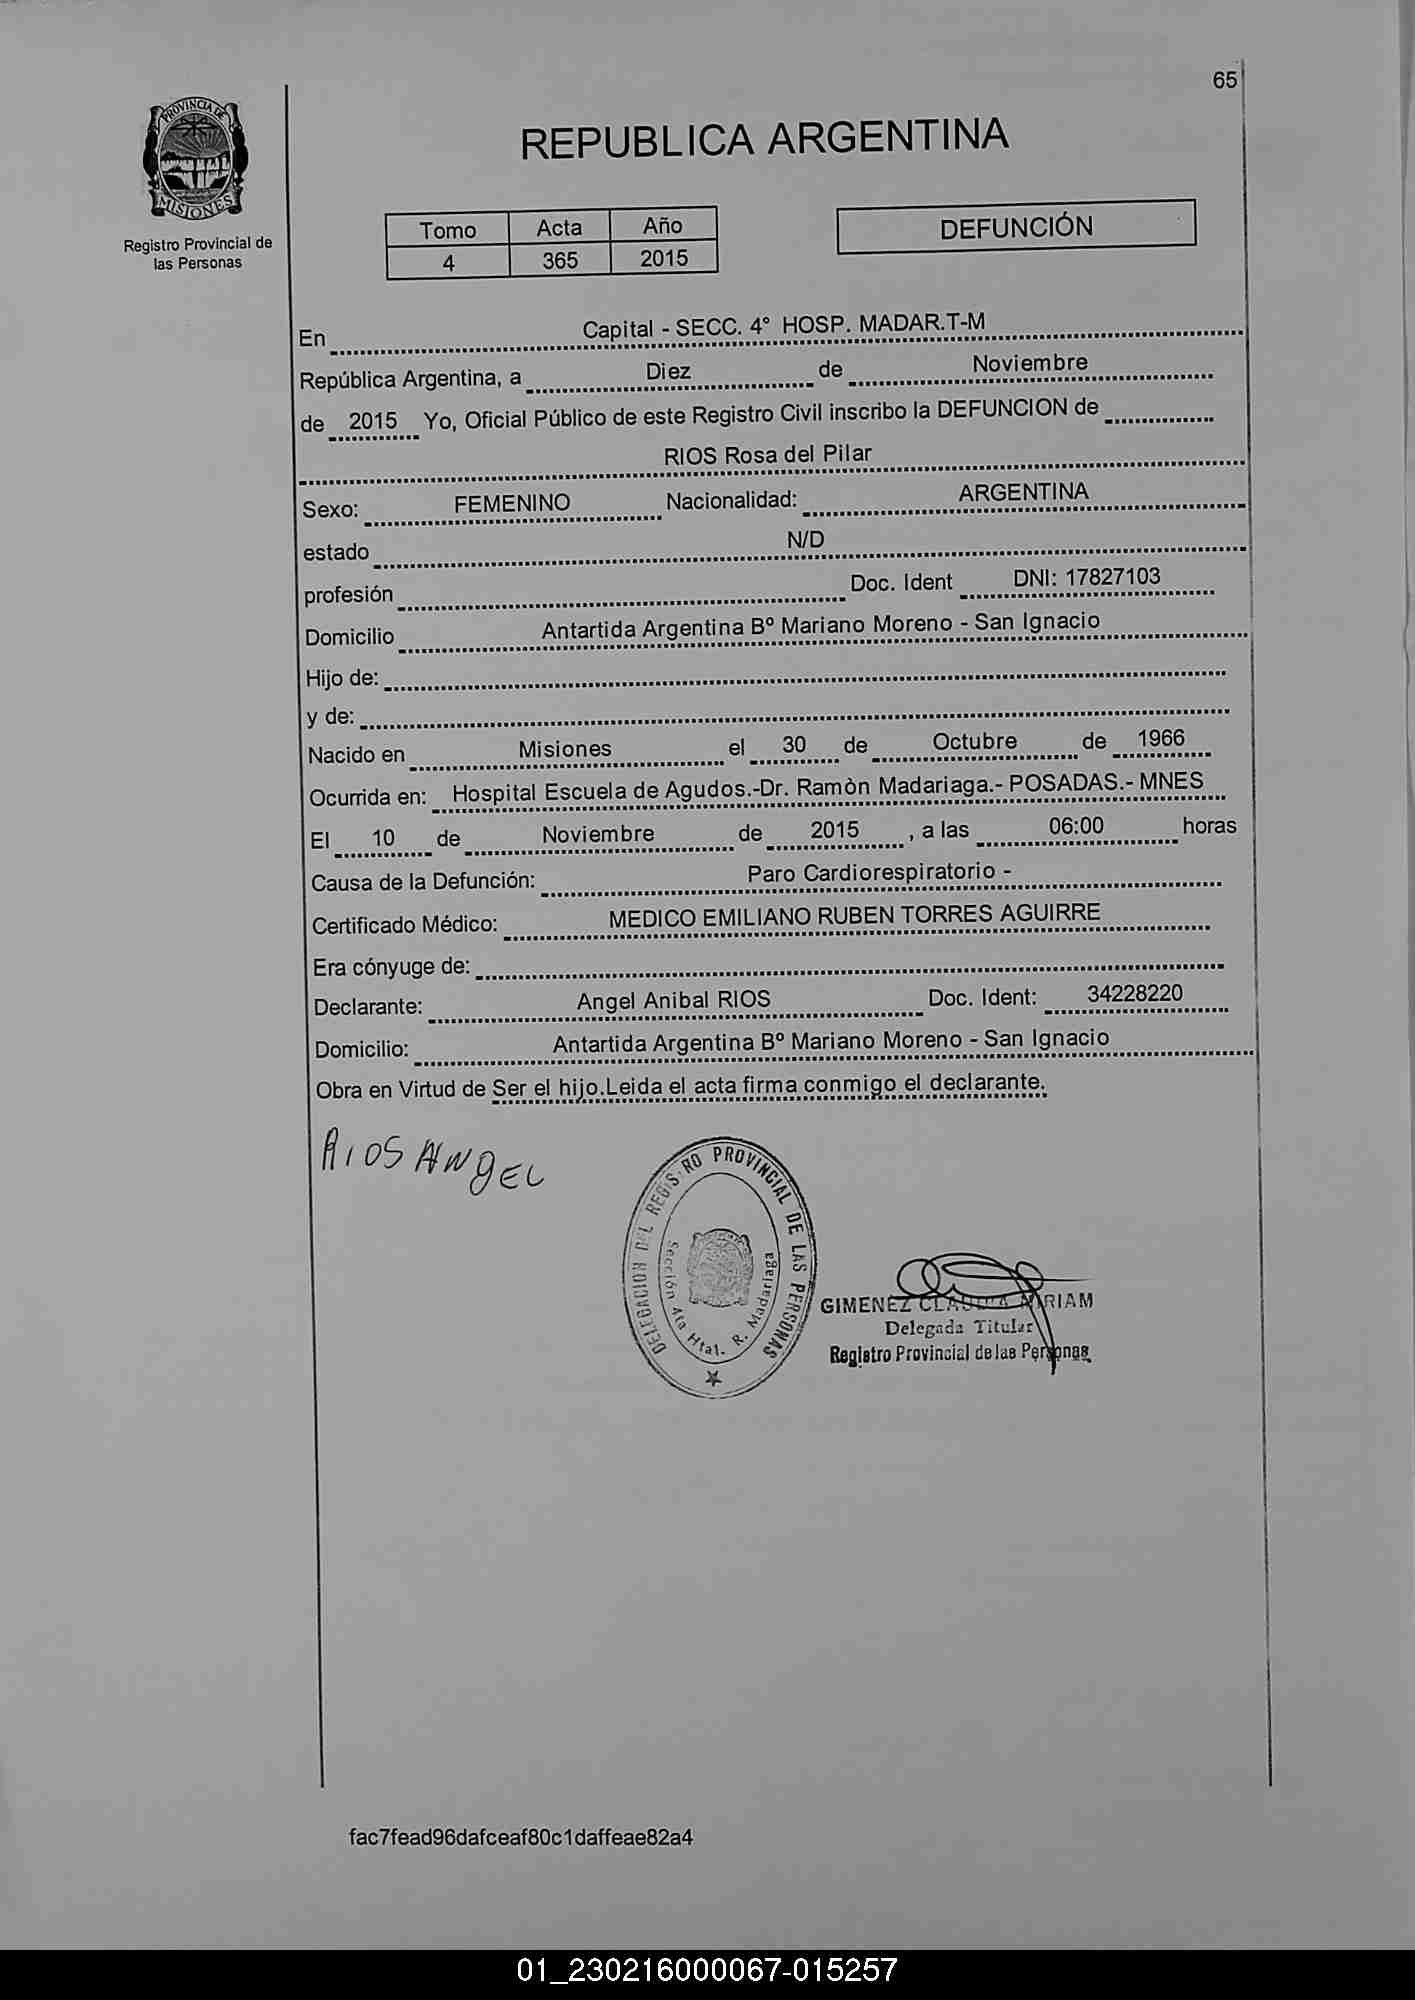 65
PROVINCIA DE
MISIONES
Registro Provincial de
las Personas
REPUBLICA ARGENTINA
Tomo Acta Año
4 365 2015
DEFUNCIÓN
En Capital - SECC. 4° HOSP. MADAR.T-M
República Argentina, a Diez de Noviembre
de 2015 Yo, Oficial Público de este Registro Civil inscribo la DEFUNCION de
RIOS Rosa del Pilar
Sexo: FEMENINO Nacionalidad: ARGENTINA
estado N/D
profesión Doc. Ident DNI: 17827103
Domicilio Antartida Argentina Bº Mariano Moreno - San Ignacio
Hijo de:
y de:
Nacido en Misiones el 30 de Octubre de 1966
Ocurrida en: Hospital Escuela de Agudos.-Dr. Ramòn Madariaga.- POSADAS.- MNES
El 10 de Noviembre de 2015 , a las 06:00 horas
Causa de la Defunción: Paro Cardiorespiratorio -
Certificado Médico: MEDICO EMILIANO RUBEN TORRES AGUIRRE
Era cónyuge de:
Declarante: Angel Anibal RIOS Doc. Ident: 34228220
Domicilio: Antartida Argentina Bº Mariano Moreno - San Ignacio
Obra en Virtud de Ser el hijo.Leida el acta firma conmigo el declarante.
RIOS ANGEL
DELEGACION DEL REGISTRO PROVINCIAL DE LAS PERSONAS
Sección 4ta Htal. R. Madariaga
GIMENEZ CLAUDIA MIRIAM
Delegada Titular
Registro Provincial de las Personas
fac7fead96dafceaf80c1daffeae82a4
01_230216000067-015257